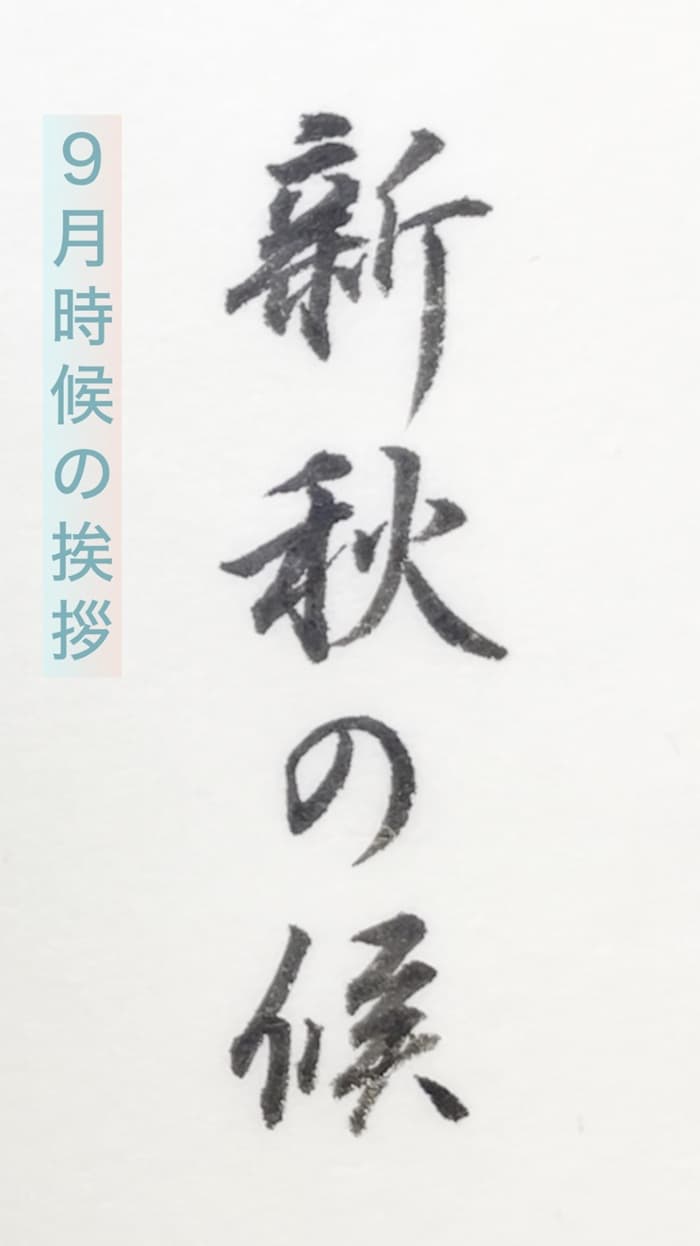 新秋の候
9月時候の挨拶